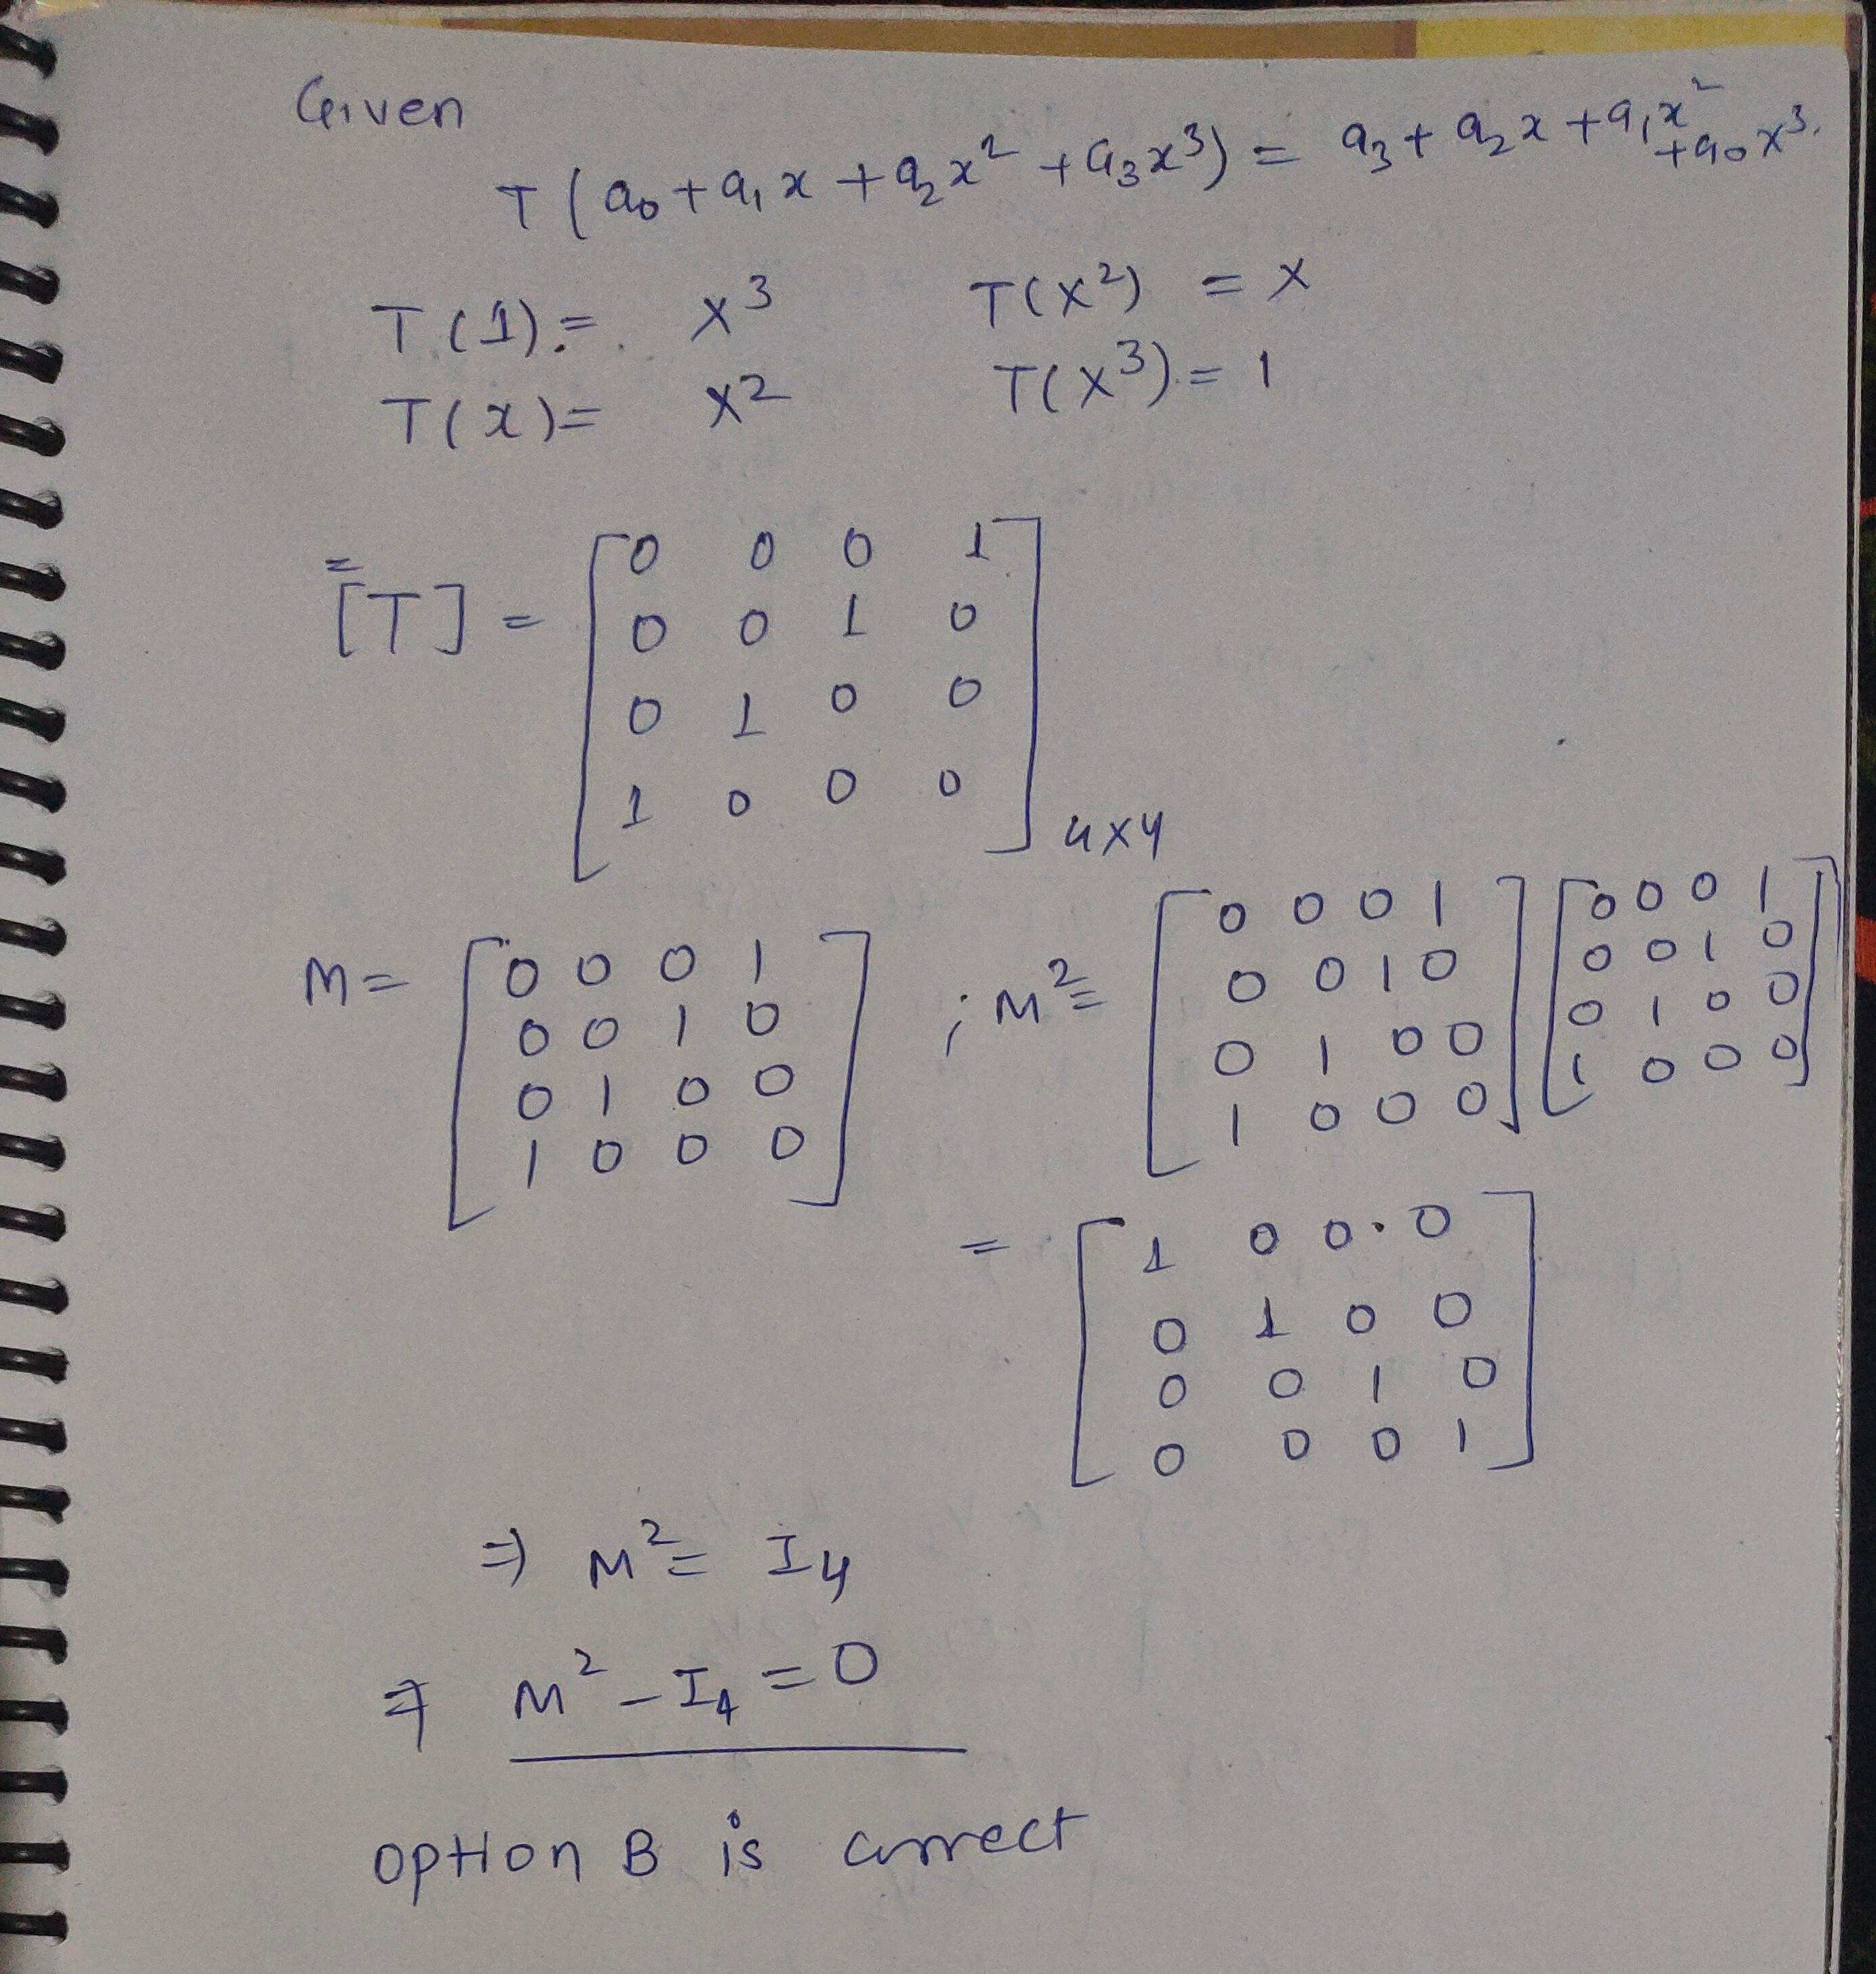 Given
T(a₀+a₁x+a₂x²+a₃x³) = a₃+a₂x+a₁x²+a₀x³.
T(1) = x³ T(x²) = x
T(x) = x² T(x³) = 1
[T] =
0 0 0 1
0 0 1 0
0 1 0 0
1 0 0 0
4x4
M = ; M² =
0 0 0 1 0 0 0 1 0 0 0 1
0 0 1 0 0 0 1 0 0 0 1 0
0 1 0 0 0 1 0 0 0 1 0 0
1 0 0 0 1 0 0 0 1 0 0 0
=
1 0 0 0
0 1 0 0
0 0 1 0
0 0 0 1
⇒ M² = I₄
⇒ M² - I₄ = 0
option B is correct